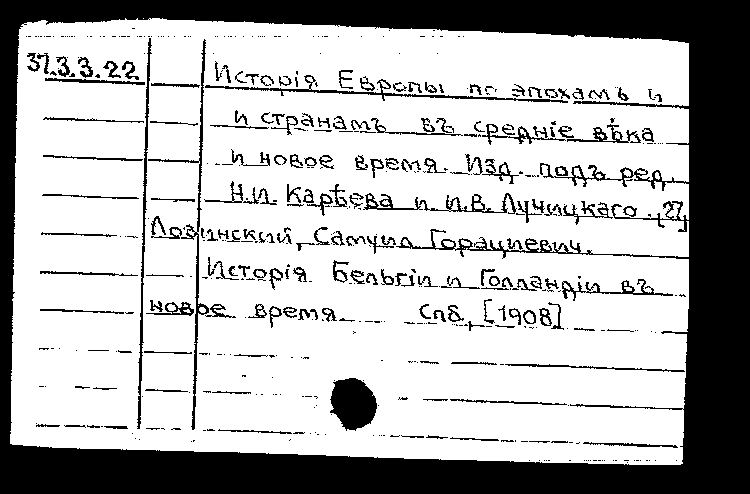 37.3.3.22 Исторія Европы по эпохамъ и
и странамъ въ средніе вѣка
и новое время. Изд. подъ ред.
Н.И. Карѣева и И.В. Лучицкаго. [27]
Лозинский, Самуил Горациевич.
Исторія Бельгіи и Голландіи въ
новое время. Спб, [1908]